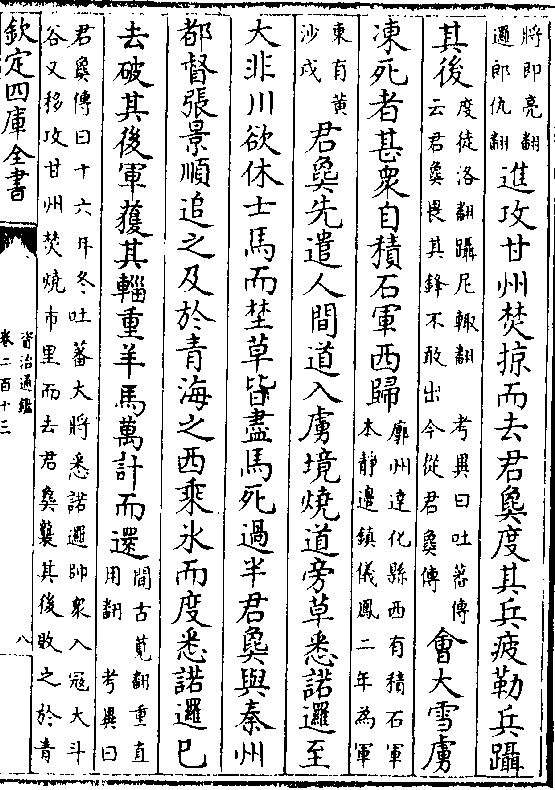 將即亮翻
邏郎佐翻
進攻甘州焚掠而去君㚟度其兵疲勒兵躡
其後
度徒洛翻躡尼輒翻 考異曰吐蕃傳
云君㚟畏其鋒不敢出今從君㚟傳
會大雪虜
凍死者甚衆自積石軍西歸
廓州達化縣西有積石軍
本靜邊鎮儀鳳二年為軍
東有黄
沙戍
君㚟先遣人間道入虜境燒道旁草悉諾邏至
大非川欲休士馬而埜草皆盡馬死過半君㚟與秦州
都督張景順追之及於青海之西乘氷而度悉諾邏已
去破其後軍獲其輜重羊馬萬計而還
間古莧翻重直
用翻 考異曰
君㚟傳曰十六年冬吐蕃大將悉諾邏帥衆入寇大斗
谷又移攻甘州焚燒市里而去君㚟襲其後敗之於青
欽定四庫全書
資治通鑑
卷二百十三
八